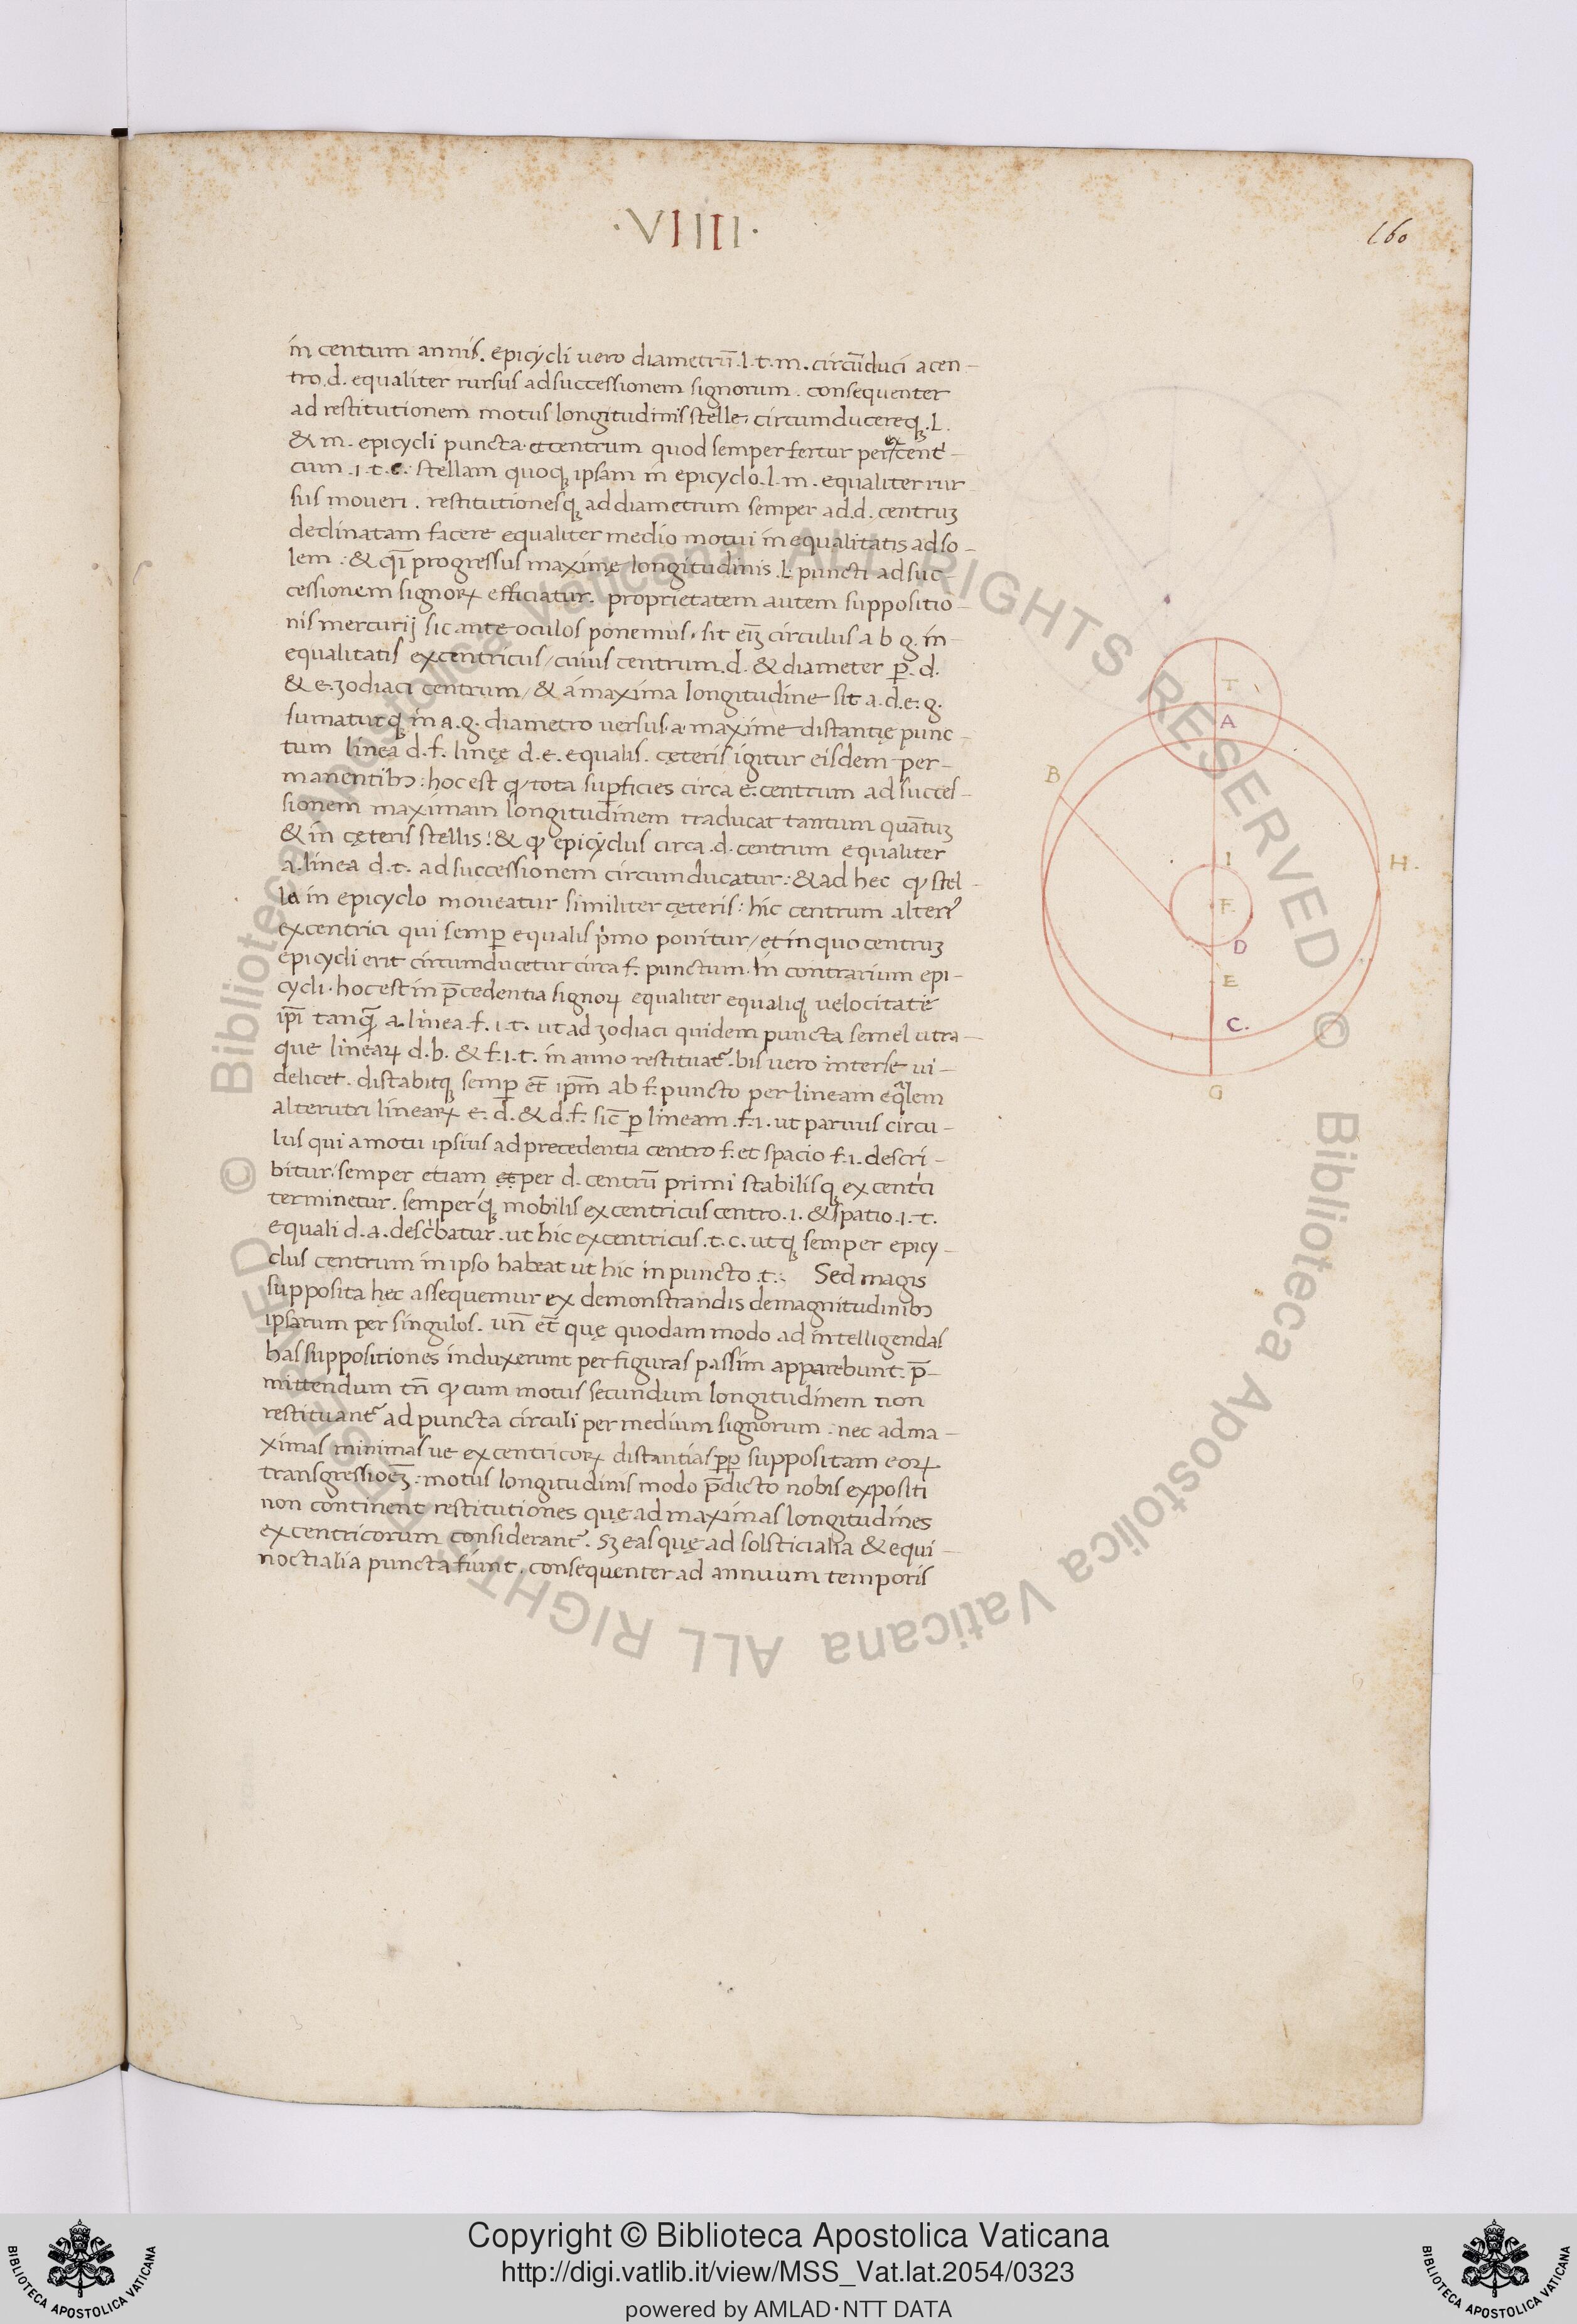 ·VIIII·
160
in centum annis. epicycli uero diametrū.l.t.m.circūduci a cen-
tro.d. equaliter rursus ad successionem signorum. consequenter
ad restitutionem motus longitudinis stelle. circumducereqꝫ.l.
& m. epicycli puncta. et centrum quod semper fertur per excent'-
cum.i.t.c: stellam quoqꝫ ipsam in epicyclo.l.m. equaliter rur
sus moueri. restitutionesqꝫ ad diametrum semper ad.d. centruꝫ
declinatam facere equaliter medio motui inequalitatis ad so-
lem: & qͣi progressus maxime longitudinis.l. puncti ad suc-
cessionem signoꝝ efficiatur. proprietatem autem suppositio-
nis mercurij sic ante oculos ponemus. sit eiꝫ circulus a b g. in-
equalitatis excentricus/cuius centrum.d. & diameter ꝑ.d.
& e. zodiaci centrum/& a maxima longitudine sit a.d.e.g.
sumaturqꝫ in a.g. diametro uersus.a. maxime distantię punc-
tum linea d.f. linęę d.e. equalis. cęteris igitur eisdem per-
manentibꝰ: hoc est ꝙ tota supficies circa e. centrum ad succes-
sionem maximam longitudinem traducat tantum quātuꝫ
& in cęteris stellis: & ꝙ epicyclus circa.d. centrum equaliter
a. linea d.t. ad successionem circumducatur: & ad hec ꝙ stel-
la in epicyclo moueatur similiter cęteris: hic centrum alteri'
excentrici qui semꝑ equalis p'mo ponitur/et in quo centruꝫ
epicycli erit circumducetur circa f. punctum. In contrarium epi-
cycli. hoc est in p̄cedentia signoꝝ equaliter equaliqꝫ uelocitate
ip̄i tanqͣ a. linea.f.i.t. ut ad zodiaci quidem puncta semel utra-
que lineaꝝ d.b. & f.i.t. in anno restituat'. bis uero inter se ui-
delicet. distabitqꝫ semꝑ et̄ ip̄m ab f. puncto per lineam eqͣlem
alterutri lineaꝝ e.d. & d.f. sic̄ ꝑ lineam.f.i. ut paruus circu-
lus qui a motu ipsius ad precedentia centro f. et spacio f.i. descri-
bitur: semper etiam et per d. centrū primi stabilisqꝫ excent'ci
terminetur. semperqꝫ mobilis excentricus centro.i. & spatio.i.t.
equali d.a. desc'batur. ut hic excentricus.t.c. utqꝫ semper epicy-
clus centrum in ipso habeat ut hic in puncto.t. Sed magis
supposita hec assequemur ex demonstrandis de magnitudinibꝰ
ipsarum per singulos. un̄ et̄ quę quodam modo ad intelligendas
has suppositiones induxerunt per figuras passim apparebunt. p̄-
mittendum tn̄ ꝙ cum motus secundum longitudinem non
restituant' ad puncta circuli per medium signorum. nec ad ma-
ximas minimas ue excentricoꝝ distantias ꝓp suppositam eoꝝ
transgressioēꝫ: motus longitudinis modo p̄dicto nobis expositi
non continent restitutiones quę ad maximas longitudines
excentricorum considerant'. sꝫ eas quę ad solsticialia & equi-
noctialia puncta fiunt. consequenter ad annuum temporis
T
A
B
I
H.
F.
D
E
C.
G
Copyright © Biblioteca Apostolica Vaticana
http://digi.vatlib.it/view/MSS_Vat.lat.2054/0323
powered by AMLAD·NTT DATA
BIBLIOTECA APOSTOLICA VATICANA
BIBLIOTECA APOSTOLICA VATICANA
© Biblioteca Apostolica Vaticana ALL RIGHTS RESERVED
© Biblioteca Apostolica Vaticana ALL RIGHTS RESERVED